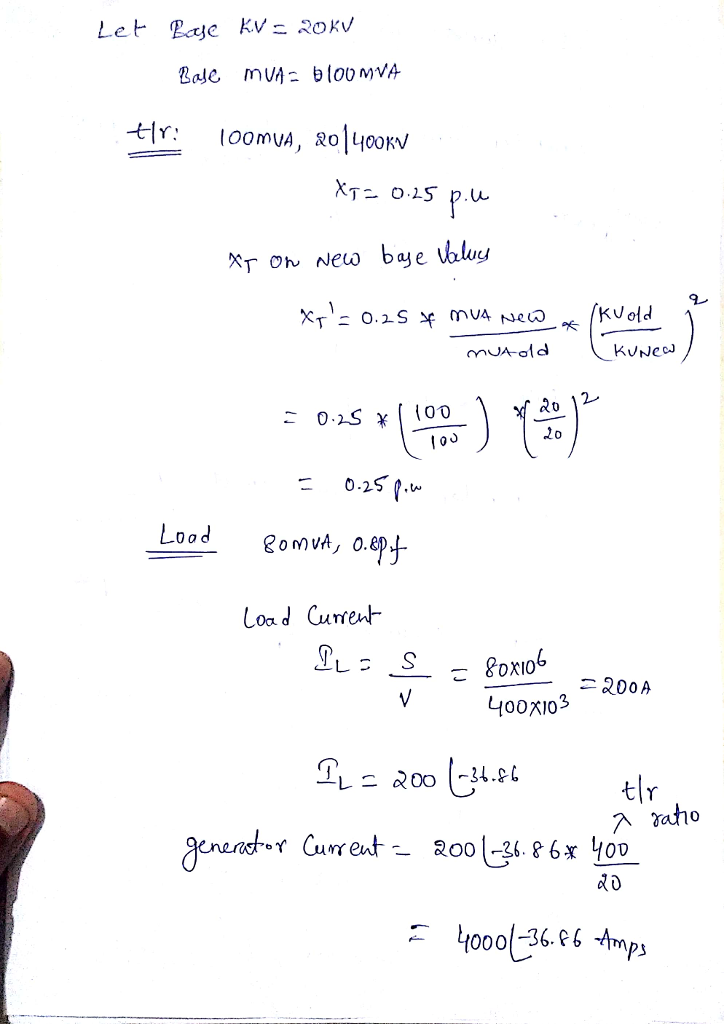 Let Base KV = 20KV
Base MVA = 100MVA
t/r: 100MVA, 20/400KV
XT = 0.25 p.u
XT on New base values
XT' = 0.25 * MVA New / MVA old * (KV old / KV New)²
= 0.25 * (100 / 100) * (20 / 20)²
= 0.25 p.u
Load 80MVA, 0.8p.f
Load Current
IL = S / V = 80x10⁶ / 400x10³ = 200A
IL = 200 ∠-36.86
t/r ratio
generator Current = 200 ∠-36.86 * 400 / 20
= 4000 ∠-36.86 Amps